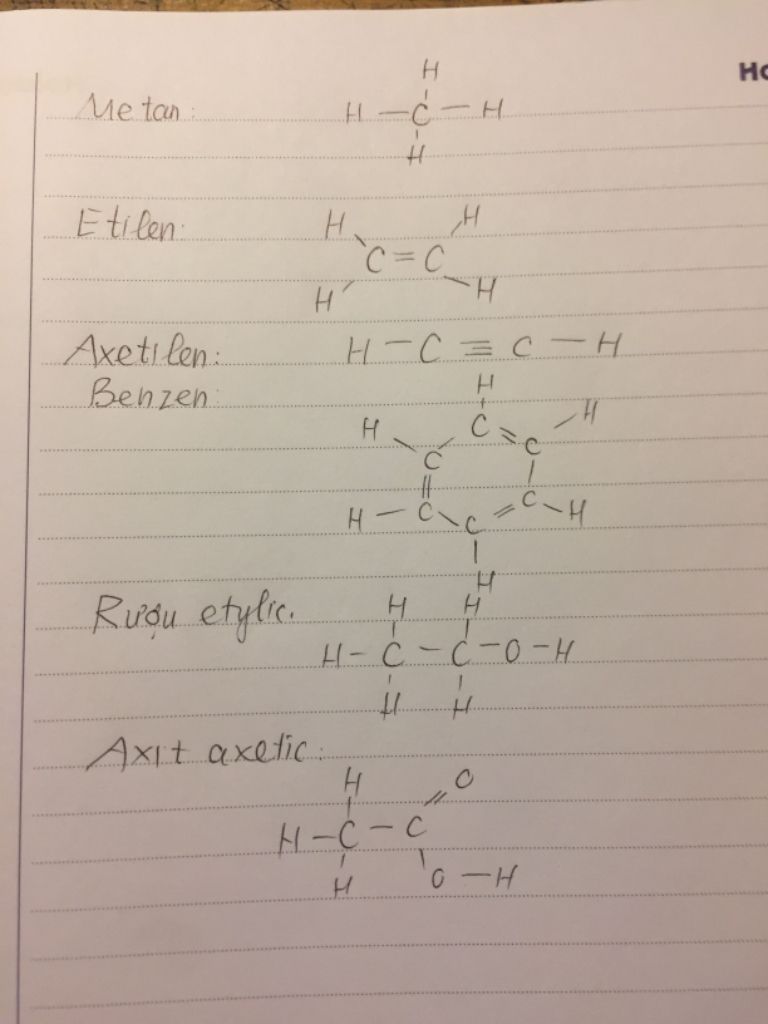 Ho
H
Metan: H — C — H
H
Etilen: H H
C = C
H H
Axetilen: H — C ≡ C — H
Benzen: H
H C C H
C
H — C C H
C
H
Rượu etylic. H H
H — C — C — O — H
H H
Axit axetic:
H O
H — C — C
H O — H